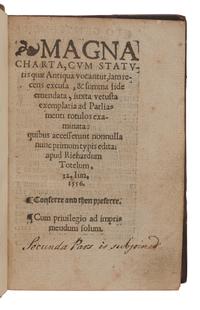 MAGNA
CHARTA, CVM STATV-
tis quæ Antiqua vocantur, iam re-
cens excusa, & summa fide
emendata, iuxta vetusta
exemplaria ad Parlia-
menti rotulos exa-
minata:
quibus accesserunt nonnulla
nunc primum typis edita:
apud Richardum
Totelum.
12. Iun.
1556.
¶Conferre and then preferre.
¶Cum priuilegio ad impri-
mendum solum.
Secunda Pars is subjoined